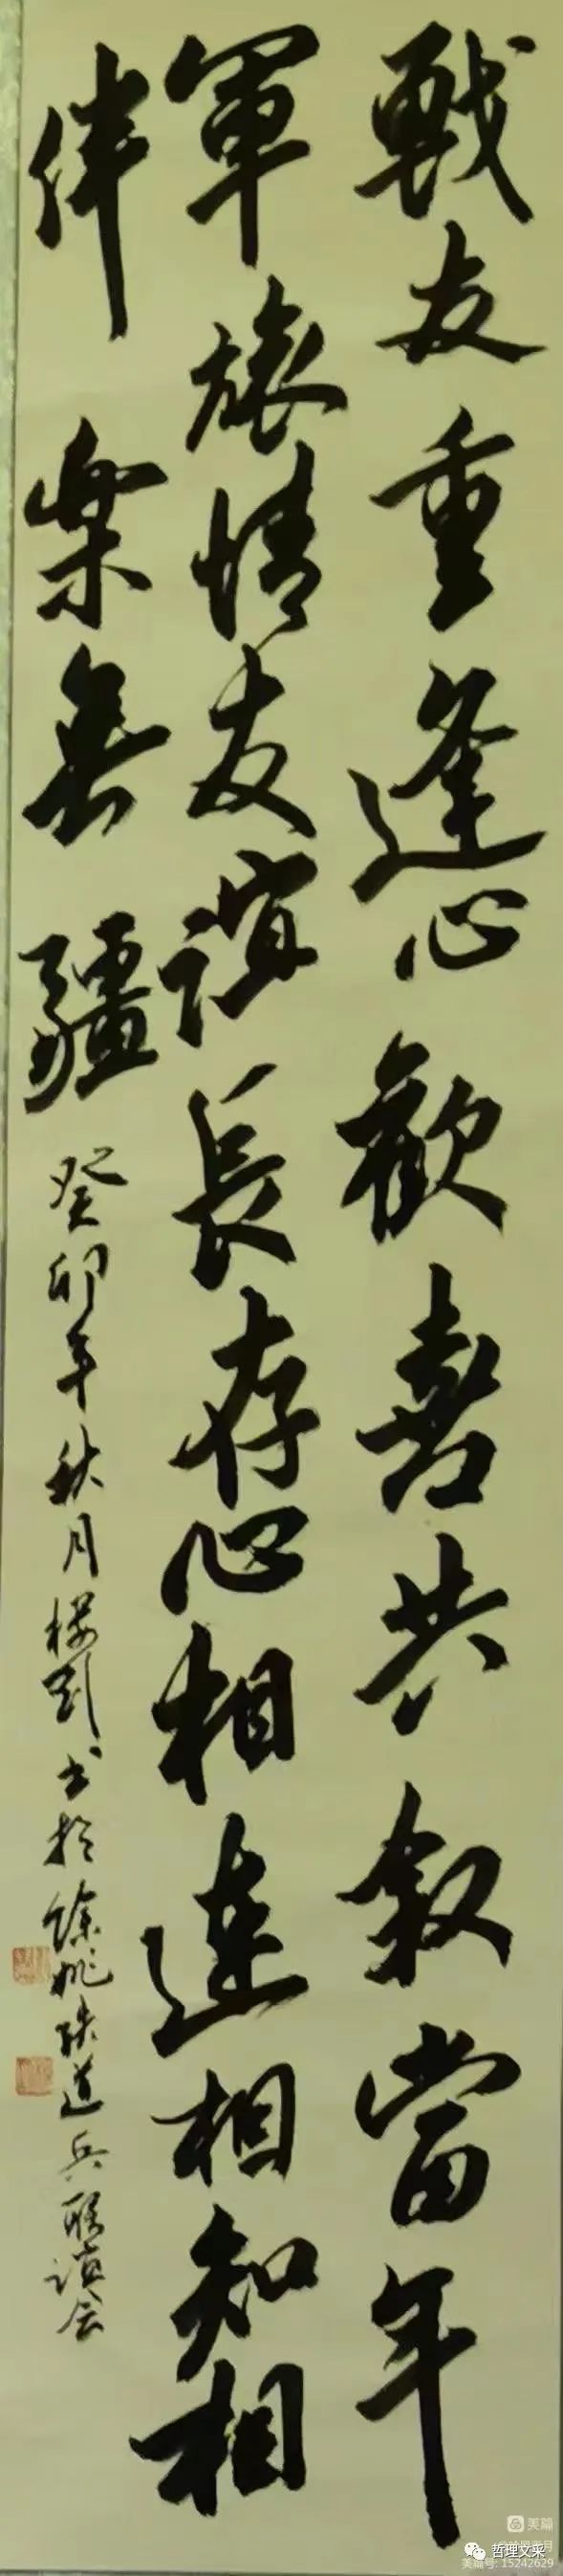 戰友重逢心歡喜共敘當年
軍旅情友誼長存心相連相知相
伴樂無疆
癸卯年秋月楼剛书於馀姚铁道兵联谊会
美篇
哲理文采
美篇号: 15242629